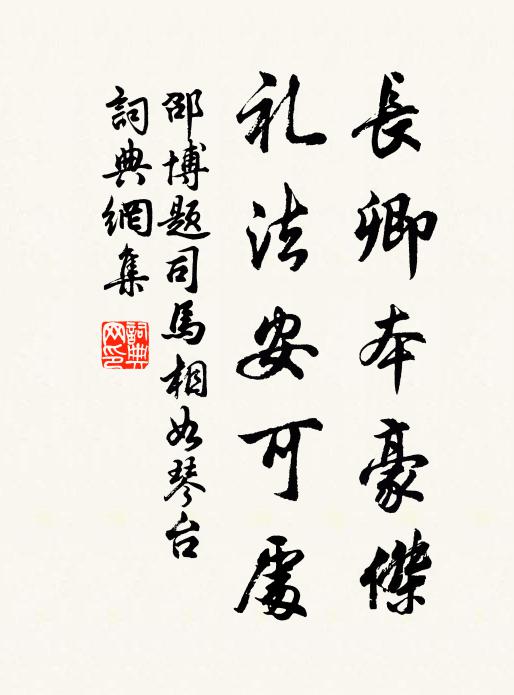 長卿本豪傑
礼法安可處
邵博题司馬相如琴台
詞典網集
詞典網印